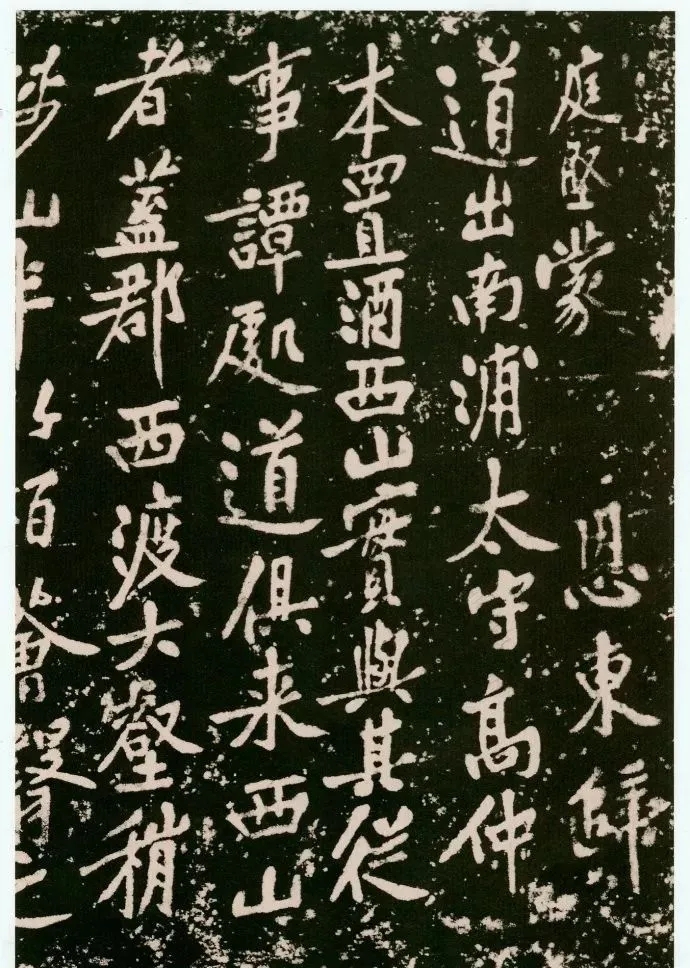 庭堅蒙 恩東歸
道出南浦太守高仲
本置酒西山實與其從
事譚處道俱来西山
者蓋郡西渡大壑稍
陟山半竹柏薈翳之